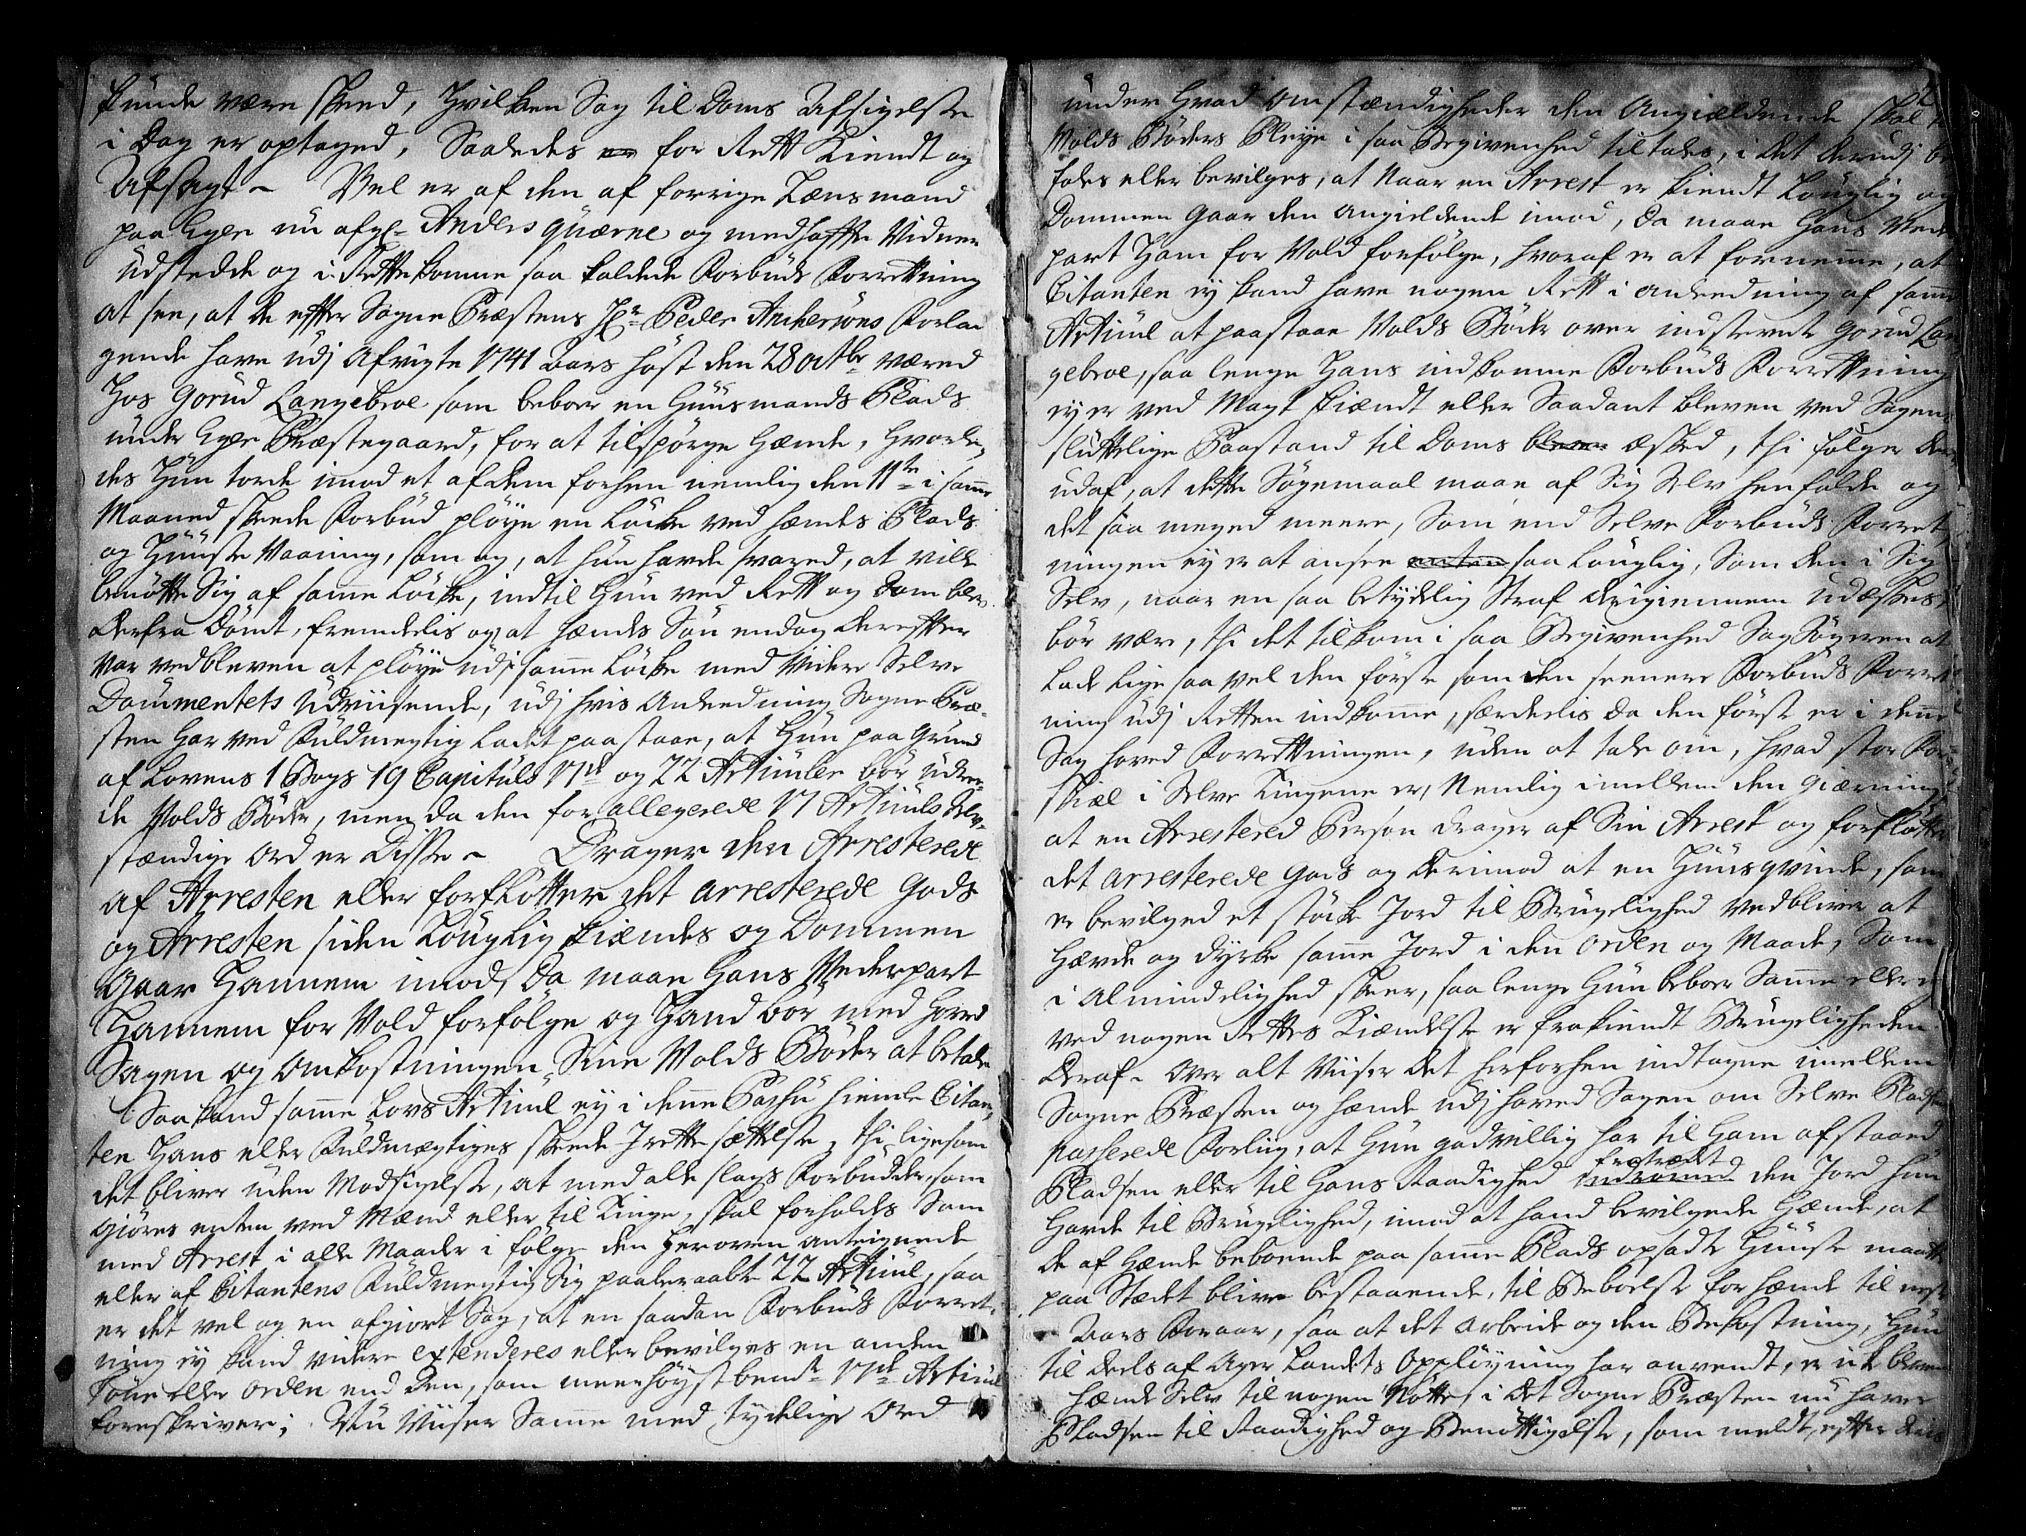 kunde være skeed, Hvilken Sag til Doms Afsigelse
i Dag er optaged, Saaledes for Rett Kiendt og
Afsagt - Vel er af den af forrige Lænsmand
paa Eger nu afg: Anders Qværne og medhafte Vidner
udstedde og i Rettekomne saa kaldede Forbuds Forrettning
at see, at de efter Sogne Præstens Hr. Peder Anchersøns Forlan
gende have udj afvigte 1741 Aars høst den 28 octbr. været
Hos Gorud Langebroe som beboer en Huusmands Plads
under Eger Præstegaard, for at tilspørge Hænde, hvorle,
des Hun torde imod et af dem forhen nemlig den 11te i samme
Maaned skeede Forbud pløye en Løcke ved hændes Plads
og Huuse Vaaning, som og, at hun havde svared, at ville
benøtte Sig af samme Løcke, indtil Hun ved Rett og Dom blev
derfra Dømt, fremdelis og at hændes Søn endog derefter
var vedbleven at pløye udj samme Løcke med videre Selve
Documentets Udviisende, udj hvis Anledning Sogne Præ-
sten har ved Fuldmegtig ladet paastaae, at Hun paa Grund
af Lovens 1 Bogs 19 Capituls 17de og 22 Articuler bør udree-
de Volds Bøder, men da den for allegerede 17 Articuls Selv-
stændige Ord er Disse - Drager den Arresterede
af Arresten eller forfløtter det arresterede Gods
og Arresten siden Louglig kiændes og Dommen
Gaar Hannem imod, Da maa Hans Vederpart
Hannem for Vold forfølge og Hand bør med Hoved
Sagen og Omkostningen, Sine Volds Bøder at betale
Saa kand samme Lovs Articul ey i denne Cashu hiemle Citan,
ten Hans eller Fuldmægtiges skeede Irettesættelse, thi ligesom
det bliver uden Modsigelse, at med alle slags Forbudder, som
Giøres enten ved Mænd eller til Tinge, skal forholdes Som
med Arrest i alle Maader i følge den heroven anteignede
eller af Citantens Fuldmegtig Sig paaberaabte 22 Articul, saa
er det vel og en afgiort Sag, at en saadan Forbuds Forret,
ning ey kand videre extenderes eller bevilges en anden
Tone eller Orden end den, som meerhøystbemte 17de Articul
foreskriver; Nu Viiser Samme med tydelige Ord
under hvad omstændigheder den Angieldende skal
Volds Bøders Pleye i saa Begivenhed tiltales, i det derudj be
fales eller bevilges, at Naar en Arrest er kiendt Louglig og
Dommen Gaar den angieldende imod, da maa Hans Veder
part Ham for Vold forfølge, hvoraf er at fornemme, at
Citanten ey kand have nogen Rett i anledning af samme
Articul at paastaae Volds Bøder over indstevnte Gorud Lan
gebroe, saa lenge Hans indkomne Forbuds Forrettning
ey er ved Magt kiændt eller Saadant bleven ved Sagens
sluttelige Paastand til Doms bleven æsked, thi følger der
udaf, at dette Søgemaal maa af Sig Selv henfalde og
det saa meged meere, Som end Selve Forbuds Forret,
ningen ey er at ansee enten saa Louglig, Som den i Sig
Selv, naar en saa betydelig Straf derigiennem udæskes,
bør være, thi det tilkom i saa Begivenhed Sag Søgeren at
lade lige saa vel den første som den seenere Forbuds Forret
ning udj Retten indkomme, særdelis da den første er i denne
Sag hoved Forrettningen, uden at tale om, hvad stor For-
skiæl i Selve Tingene er, Nemlig imellem den Giærning
at en Arrestered Person drager af Sin Arrest og forfløtter
det arresterede Gods og derimod at en Huusqvinde, som
er bevilged et støcke Jord til Brugelighed vedbliver at
Hævde og dyrke samme Jord i den Orden og Maade, Som
i Almindelighed skeer, saa lenge Hun beboer Samme eller ey
ved nogen Rettes Kiændelse er frakiendt Brugeligheden
deraf. Over alt Viiser det herforhen indtagne imellem
Sogne Præsten og hænde udj hoved Sagen om Selve Pladsen
passerede Forliig, at Hun godvillig har til Ham afstaaed
Pladsen eller til Hans Raadighed fratrædt den Jord Hun
Havde til Brugelighed, imod at hand bevilgede Hænde, at
de af Hænde beboende paa samme Plads opsadte Huuse maatte
paa Stædet blive bestaaende, til Beboelse for Hænde til neste
Aars Foraar, saa at det arbeide og den Bekostning, Hun
til deels af Ager Landets Oppløyning har anvendt, er ike bleven
hænde Selv til nogen Nøtte, i det Sogne Præsten nu haver
Pladsen til Raadighed og Benøttigelse, som meldt, efter deris